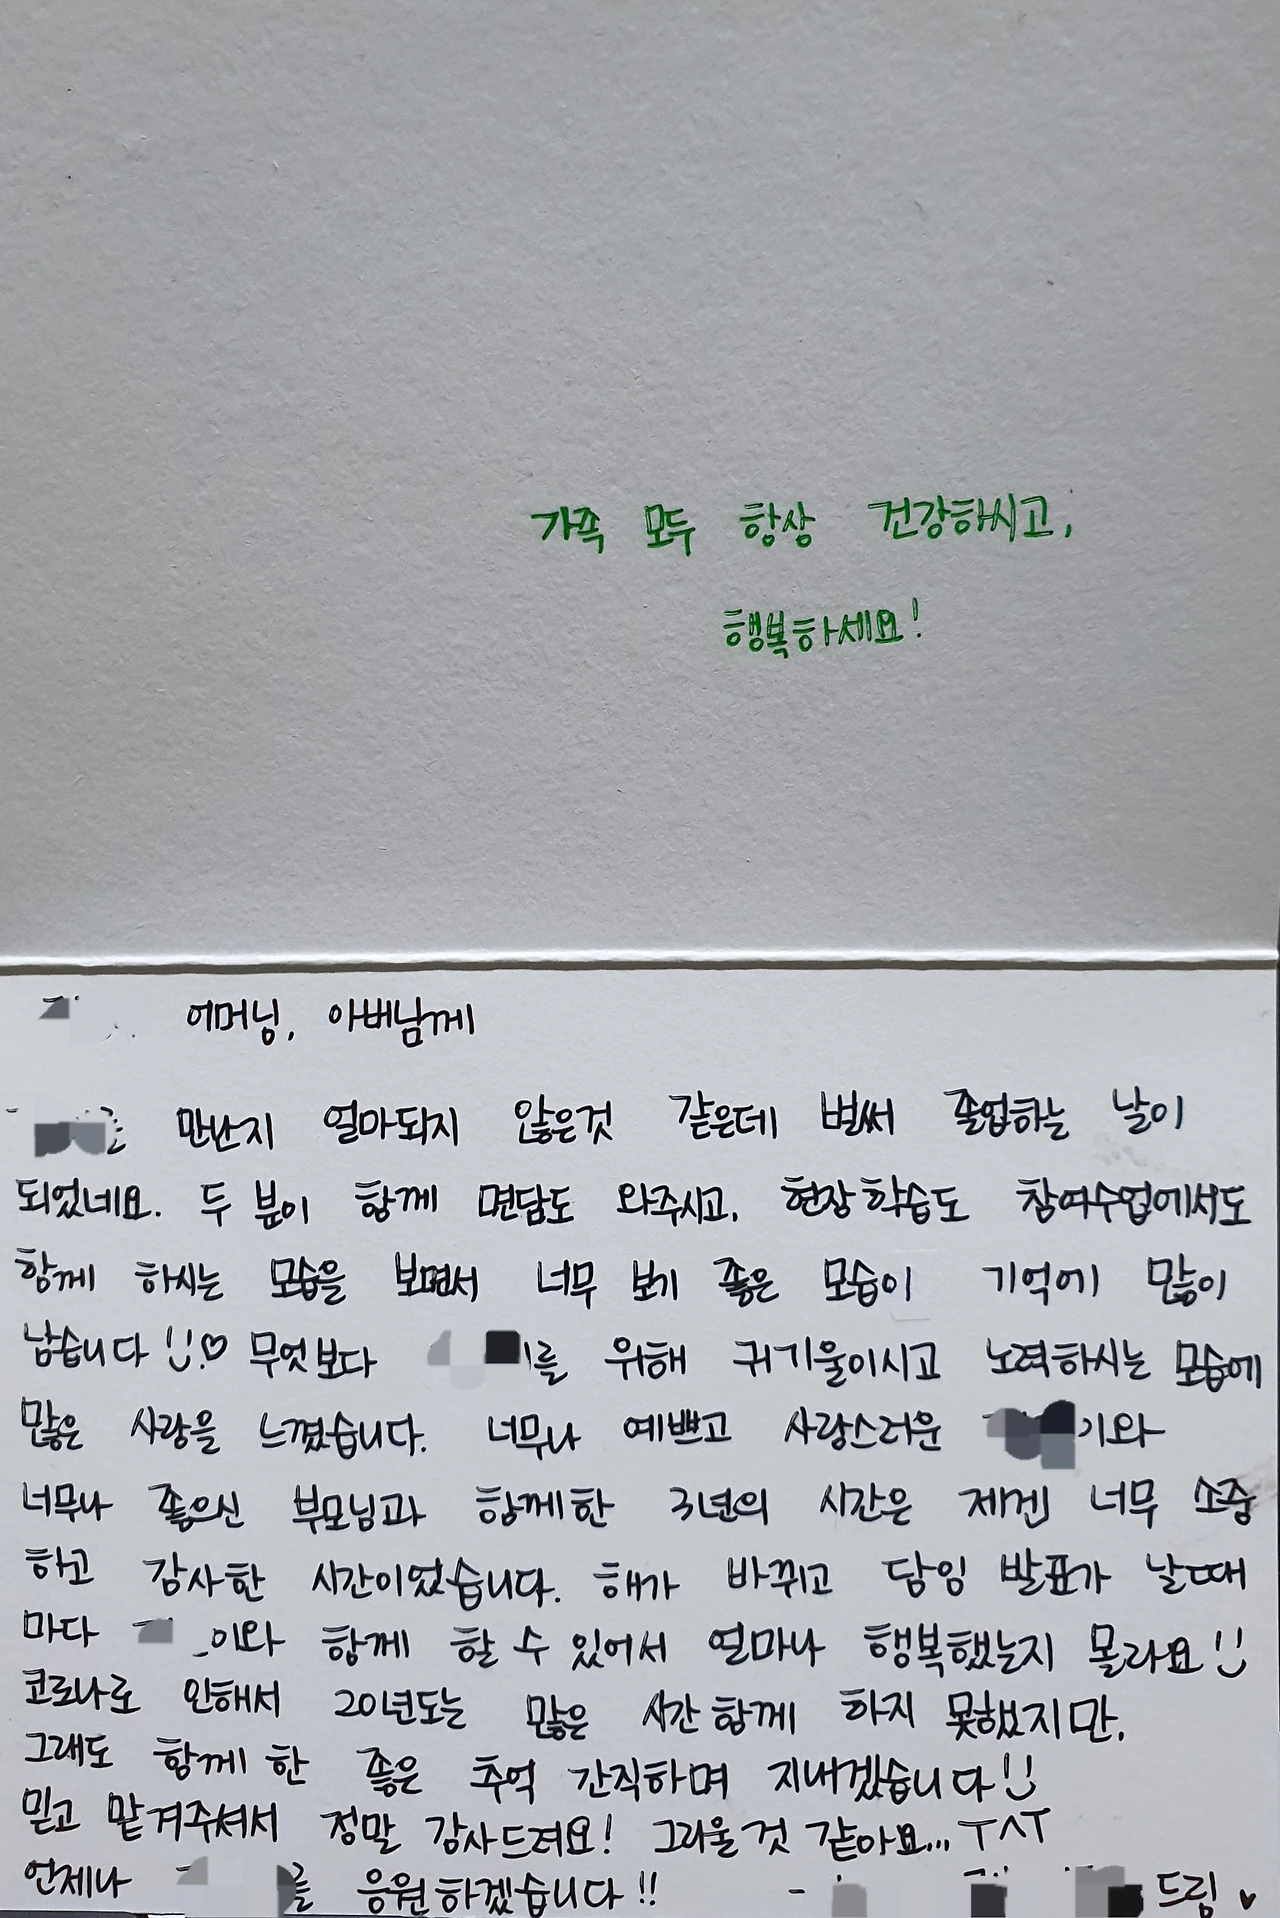 가족 모두 항상 건강하시고,
행복하세요!
어머님, 아버님께
만난지 얼마되지 않은것 같은데 벌써 졸업하는 날이
되었네요. 두 분이 함께 면담도 와주시고, 현장학습도 참여수업에서도
함께 하시는 모습을 보면서 너무 보기 좋은 모습이 기억에 많이
남습니다 !! ♡ 무엇보다 를 위해 귀기울이시고 노력하시는 모습에
많은 사랑을 느꼈습니다. 너무나 예쁘고 사랑스러운 기와
너무나 좋으신 부모님과 함께한 3년의 시간은 제겐 너무 소중
하고 감사한 시간이었습니다. 해가 바뀌고 담임 발표가 날때
마다 이와 함께 할 수 있어서 얼마나 행복했는지 몰라요 !!
코로나로 인해서 20년도는 많은 시간 함께 하지 못했지만,
그래도 함께 한 좋은 추억 간직하며 지내겠습니다 !!
믿고 맡겨주셔서 정말 감사드려요! 그리울것 같아요... ㅜㅅㅜ
언제나 를 응원하겠습니다!! - 드림 ♥